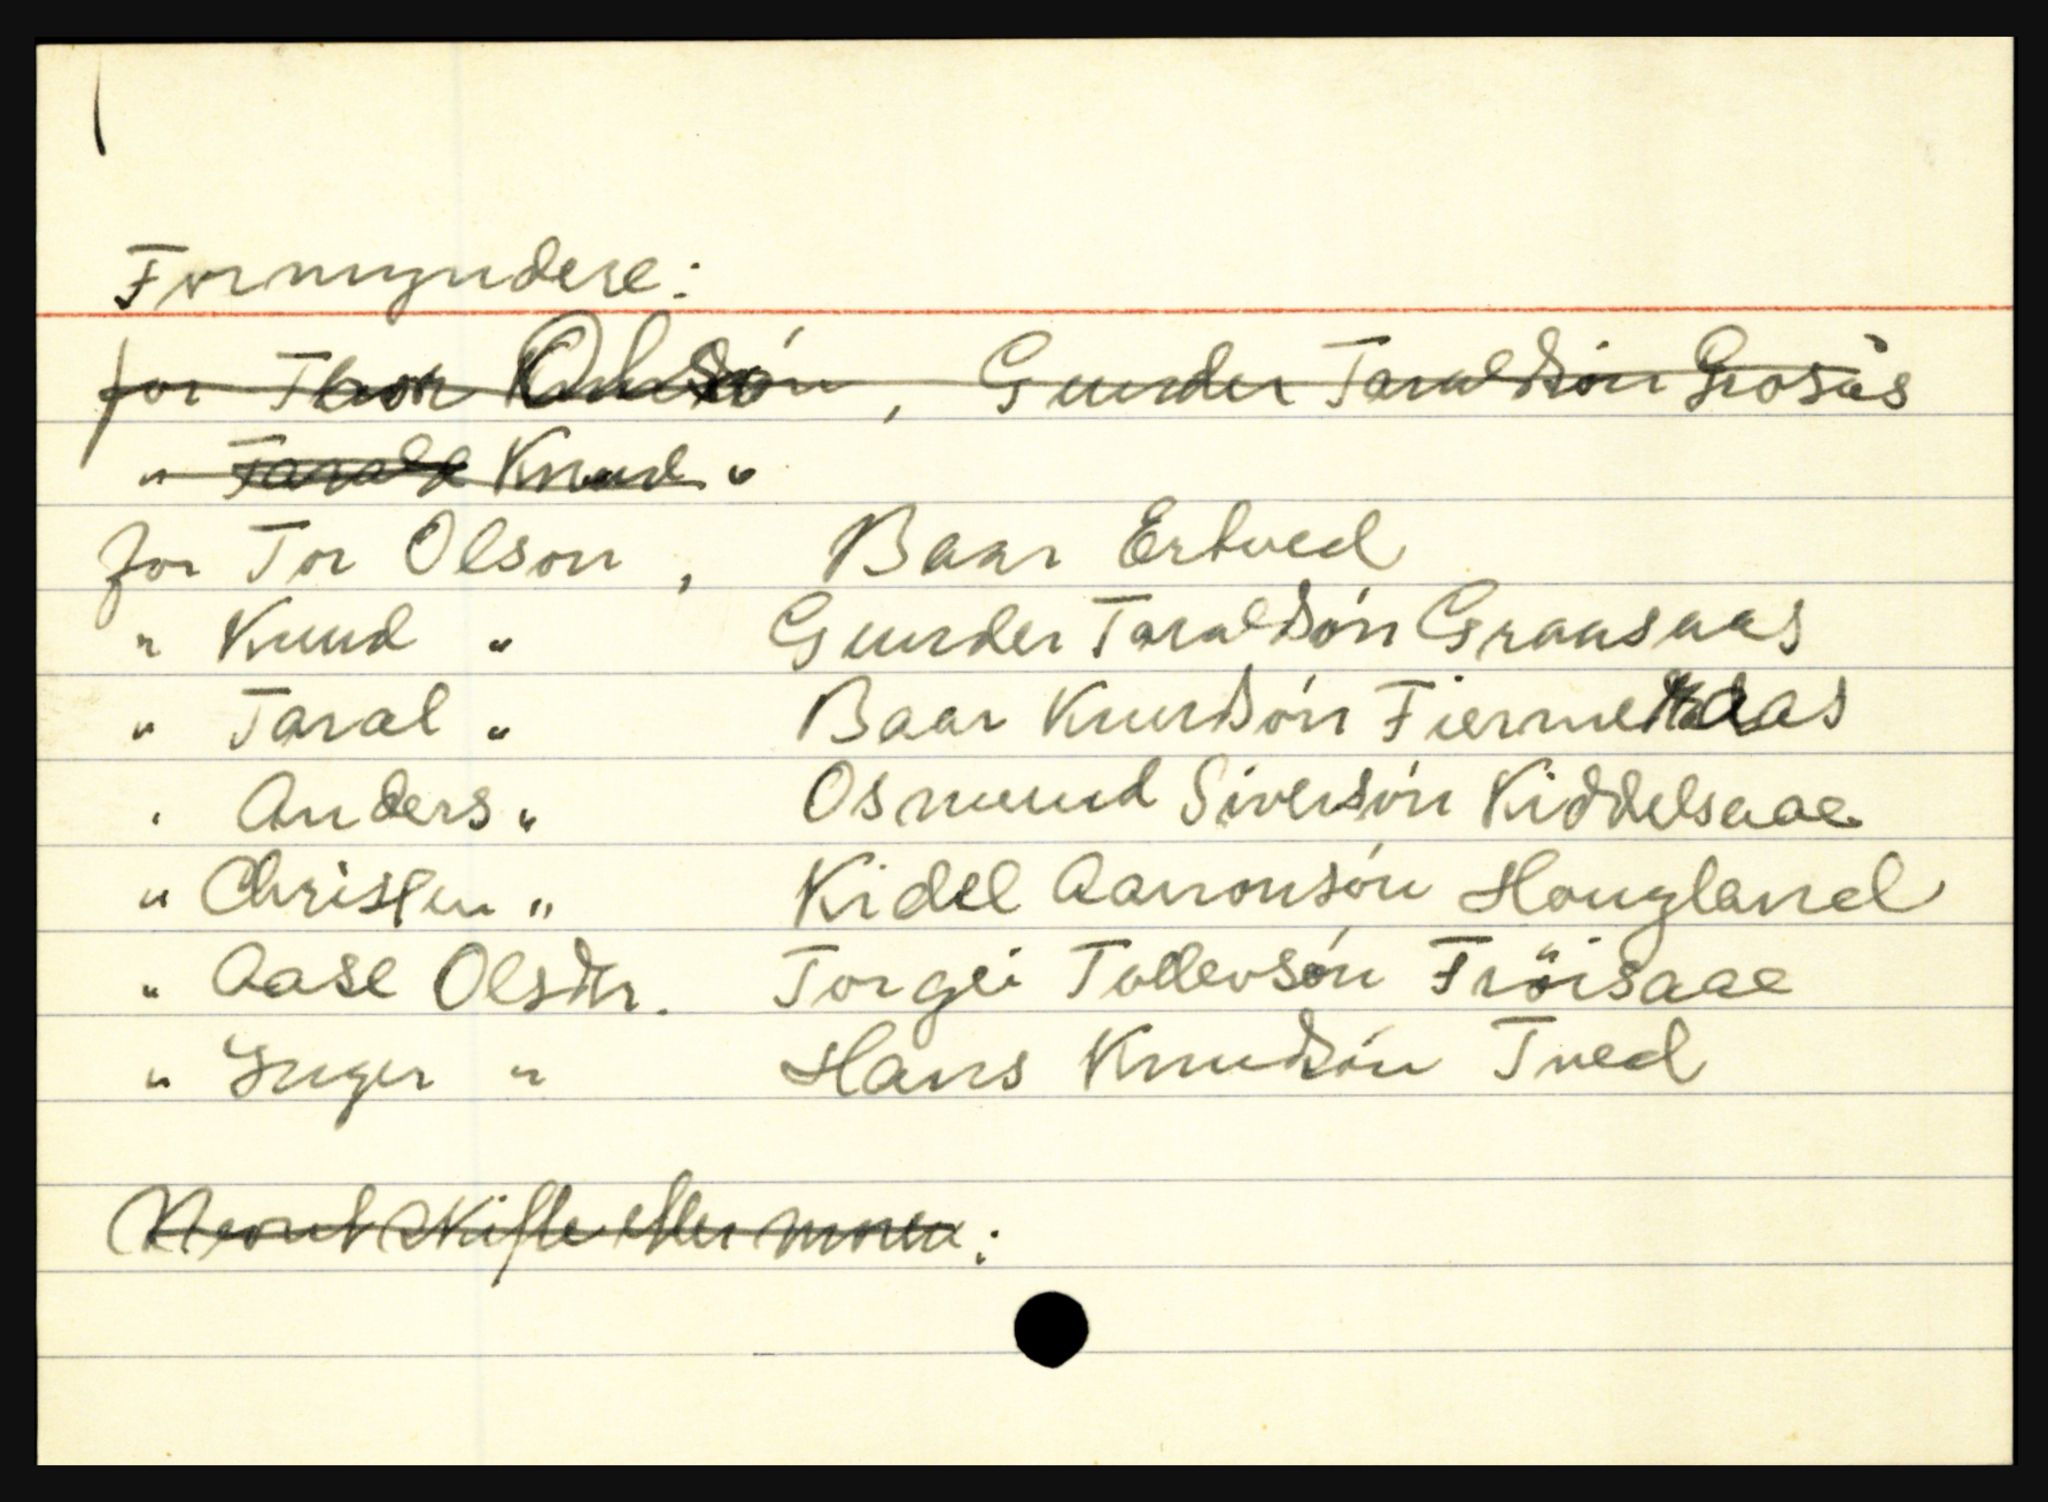 Formyndere:
for Thor Olssón, Gunder Taraldsón Grosås
" Tarald Knud "
for Tor Olson, Baar Ertved
" Knud " Gunder Taraldsón Graasaas
" Taral " Baar Knudsón Fiermedaas
" Anders " Osmund Siversón Kiddelsaae
" Christen " Kidel Aanonsón Hougland
" Aase Olsdtr. Torgei Tollevsón Fröisaae
" Inger " Hans Knudsón Tved
skifte efter moren: